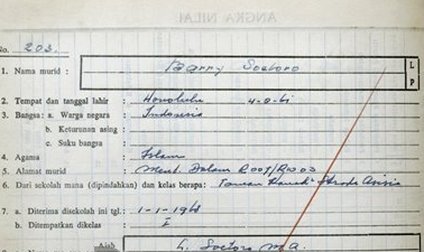 ANGKA NILAI
No. 203.
1. Nama murid : Barry Soetoro L P
2. Tempat dan tanggal lahir : Honolulu 4-8-61
3. Bangsa: a. Warga negara : Indonesia
b. Keturunan asing :
c. Suku bangsa :
4. Agama : Islam
5. Alamat murid : Ment. Dalam R007/RW03
6. Dari sekolah mana (dipindahkan) dan kelas berapa: Taman Strada Asisia
7. a. Diterima disekolah ini tgl.: 1-1-1968
b. Ditempatkan dikelas : I
Ajah L. Soetoro M.A.